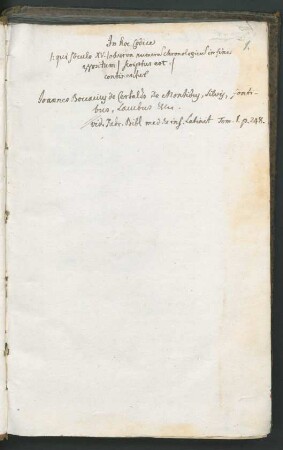 In hoc Codice
1.
|: qui seculo XV. observa numerum chronologicum in fine
appositum / scriptus est :|
continentur
Joannes Bocacius de Certaldo de Montibus, Silvis, fonti-
bus, Lacubus etc.
vid. Fabr. Bibl. med. et inf. Latinit. Tom. I. p. 248.